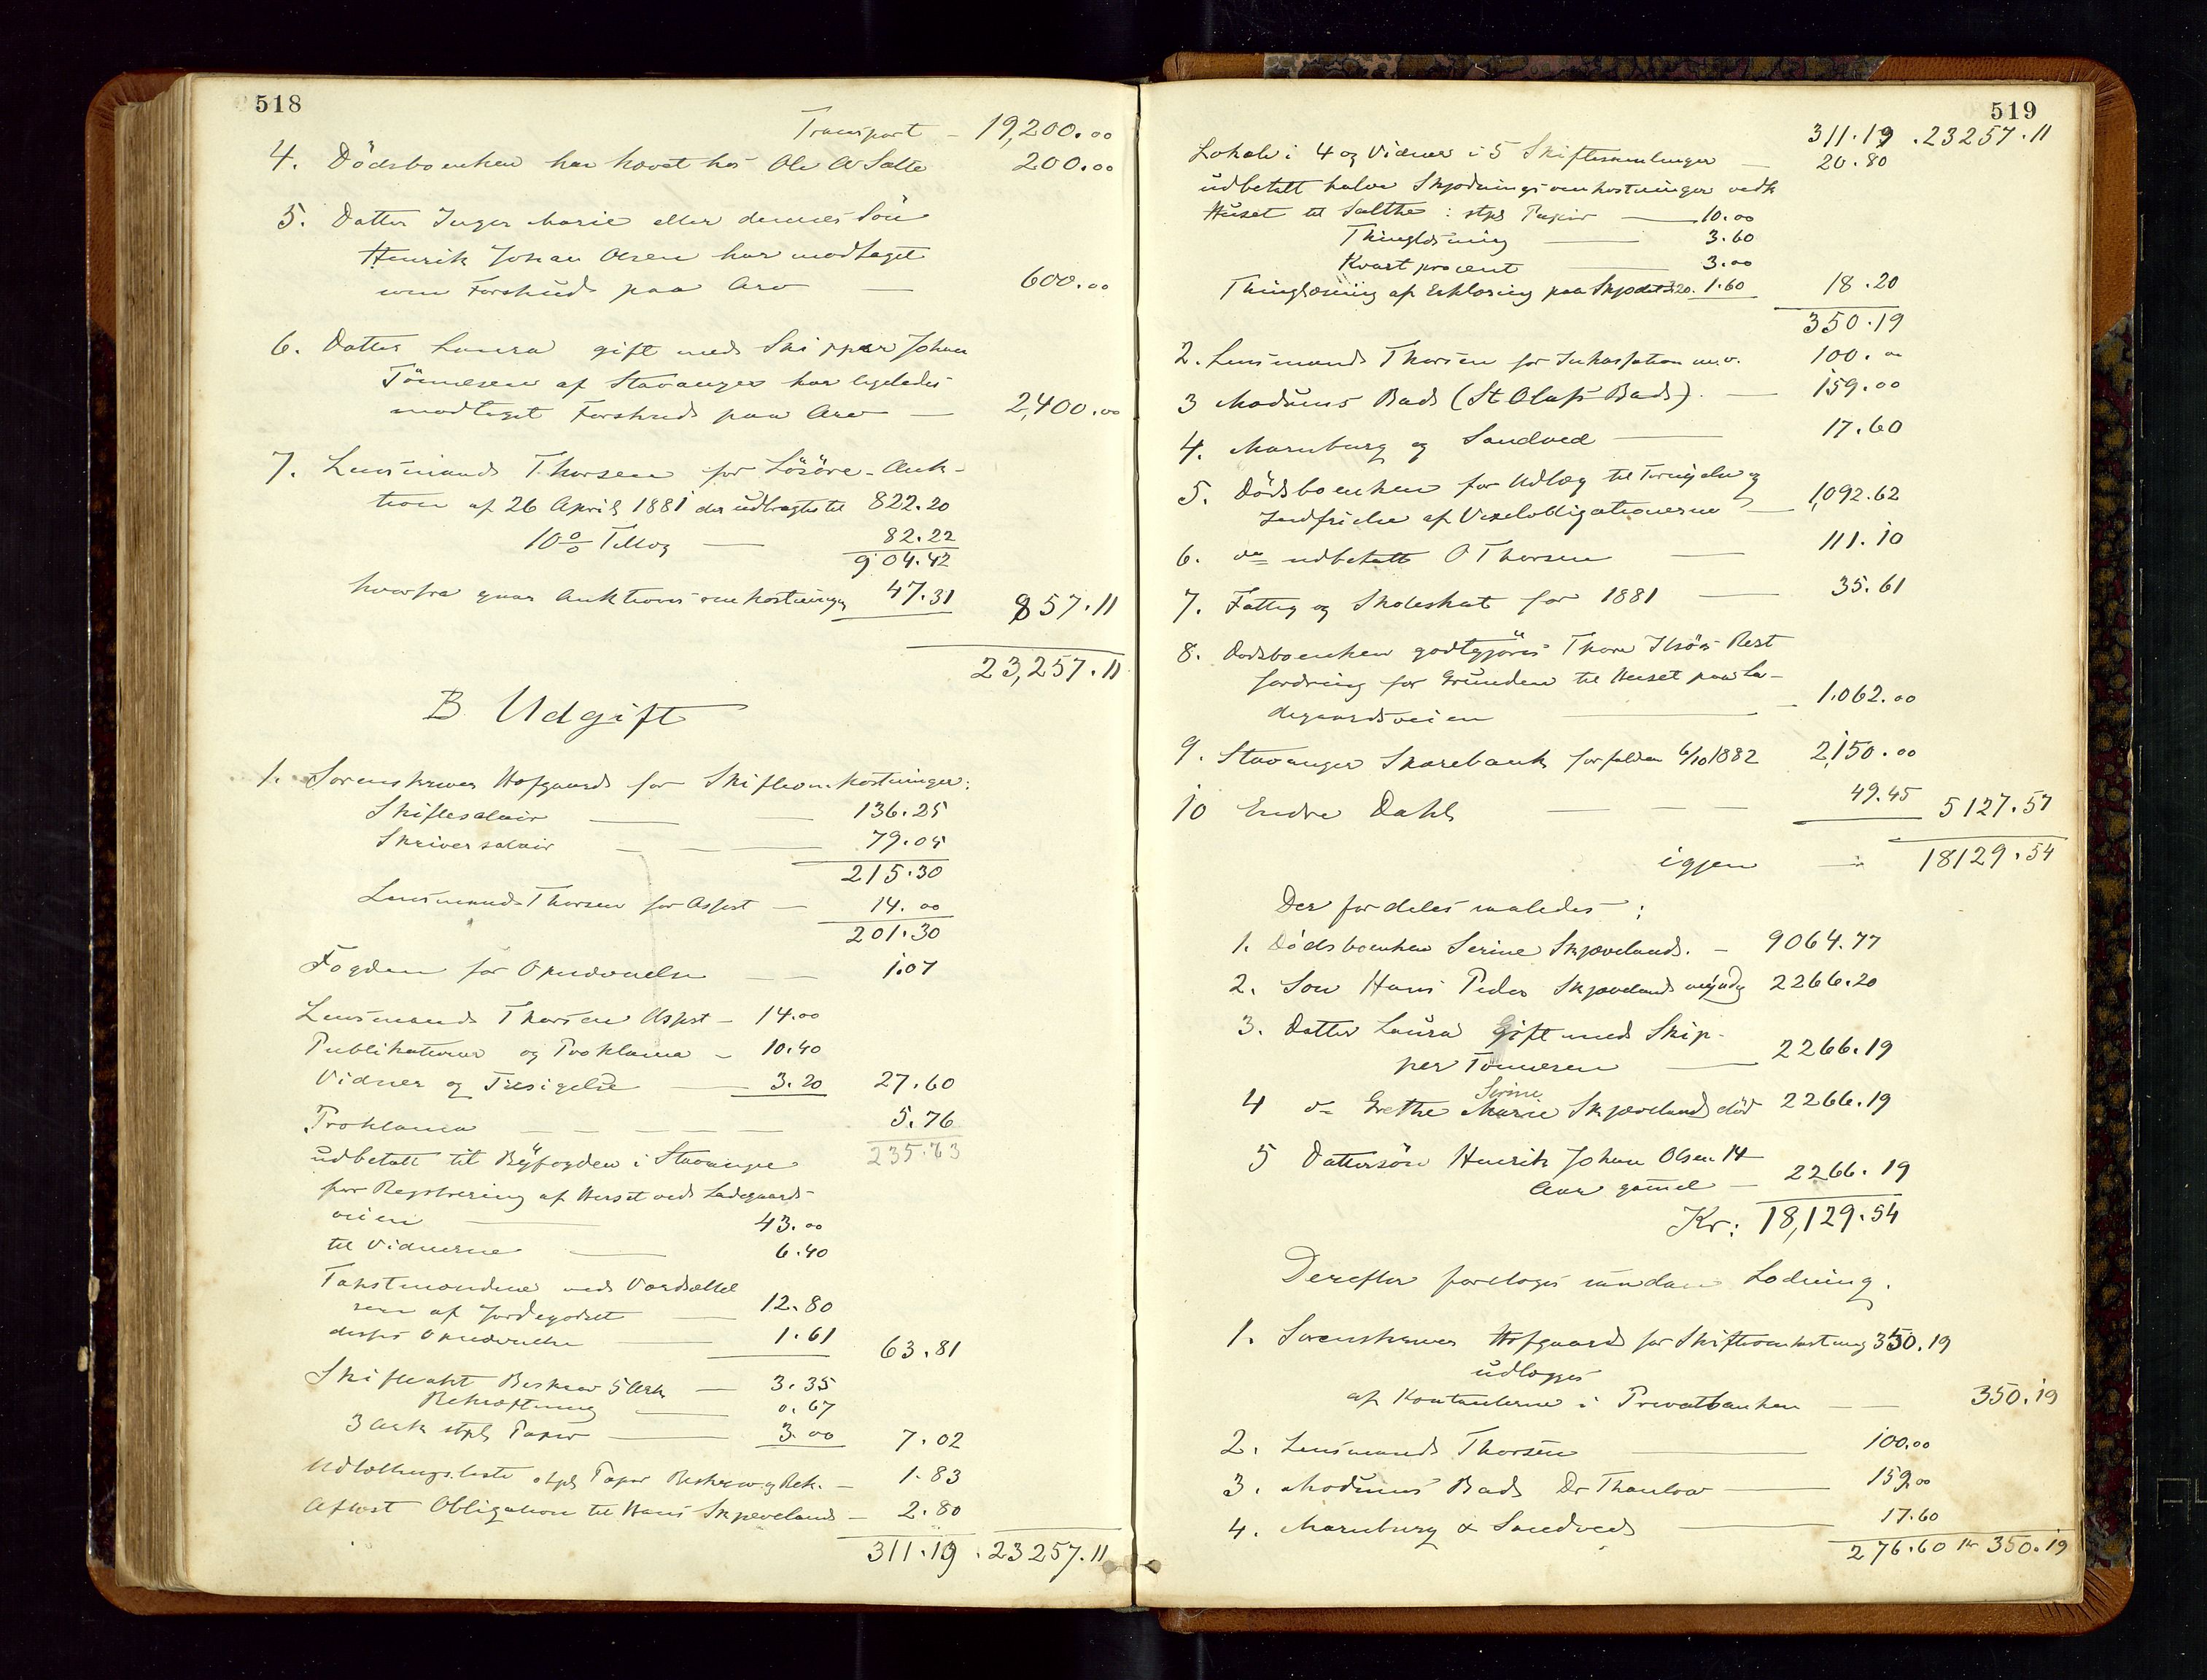 518
Transport - 19,200.00
4. Dödsboenken har hævet hos Ole A Salte 200.00
5. Datter Inger Marie eller dennes Sön
Henrik Johan Olsen har modtaget
som Forskud paa Arv — 600.00
6. Datter Laura gift med Skipper Johan
Tönnesen af Stavanger har ligeledes
modtaget Forskud paa Arv — 2,400.00
7. Lensmand Thorsen for Lösöre-Auk-
tion af 26 April 1881 der udbragtes til 822.20
10% Tillæg — 82.22
904.42
hvorfra gaar Auktionsomkostninger 47.31 857.11
23,257.11
B. Udgift
1. Sorenskriver Hofgaard for Skifteomkostninger:
Skiftesalair — 136.25
Skriversalair — 79.05
215.30
Lensmand Thorsen for Assist — 14.00
201.30
Fogden for Oknævnelse — 1.07
Lensmand Thorsen Assist — 14.00
Publikationer og Proklama — 10.40
Vidner og Forsigelse — 3.20 27.60
Proklama — 5.76
235.73
udbetalt til Byfogden i Stavanger
for Registrering af Huset ved Ladegaards-
veien — 43.00
til Vidnerne — 6.40
Takstmændene ved Værdsættel
sen af Jordegodset — 12.80
disses Opnævnelse — 1.61 63.81
Skifteakt Beskrev 5 Ark — 3.35
Bekræftning — 0.67
3 Ark stpl. Papir — 3.00 7.02
Udlodningsliste stpl Papir Beskrev og Bek. — 1.83
Aflyst Obligation til Hans Skjæveland — 2.80
311.19 . 23257.11
519
311.19 . 23257.11
Lokale i 4 og Vidner i 5 Skiftesamlinger — 20.80
udbetalt halve Skjødningsomkostninger vedk
Huset til Salthe : stpl Papir — 10.00
Thinglæsning — 3.60
Kvart procent — 3.00
Thinglæsning af Erklæring paa Skjødet 1.60 18.20
350.19
2. Lensmand Thorsen for Inkassation m.v. 100.00
3 Modums Bad (St Olafs Bad). — 159.00
4. Marnburg og Sandved — 17.60
5. Dödsboenken for Udlæg til
Indfrielse af Vexelobligationerne — 1,092.62
6. do udbetalt O Thorsen — 111.10
7. Fattig og Skoleskat for 1881 — 35.61
8. Dödsboenken godtgjöres Thore Rest
fordring for Grunden til Huset paa La-
degaardsveien — 1.062.00
9. Stavanger Sparebank forfalden 6/10 1882 2,150.00
10 Endre Dahl — — — 49.45 5127.57
igjen — 18129.54
Der fordeles saaledes :
1. Dödsboenken Serine Skjæveland. — 9064.77
2. Søn Hans Peder Skjæveland myndig 2266.20
3. Datter Laura Gift med Skip-
per Tönnesen — 2266.19
4 do Grethe Serine Marie Skjæveland död 2266.19
5 Dattersön Henrik Johan Olsen 14
Aar gamel — 2266.19
Kr: 18,129.54
Derefter foretoges saadan Lodning.
1. Sorenskriver Hofgaard for Skifteomkostning 350.19
udlægges
af Kontanterne i Privatbanken — — 350.19
2. Lensmand Thorsen — 100.00
3. Modums Bad Dr Thaulow — 159.00
4. Marnburg & Sandved — 17.60
276.60 Kr 350.19